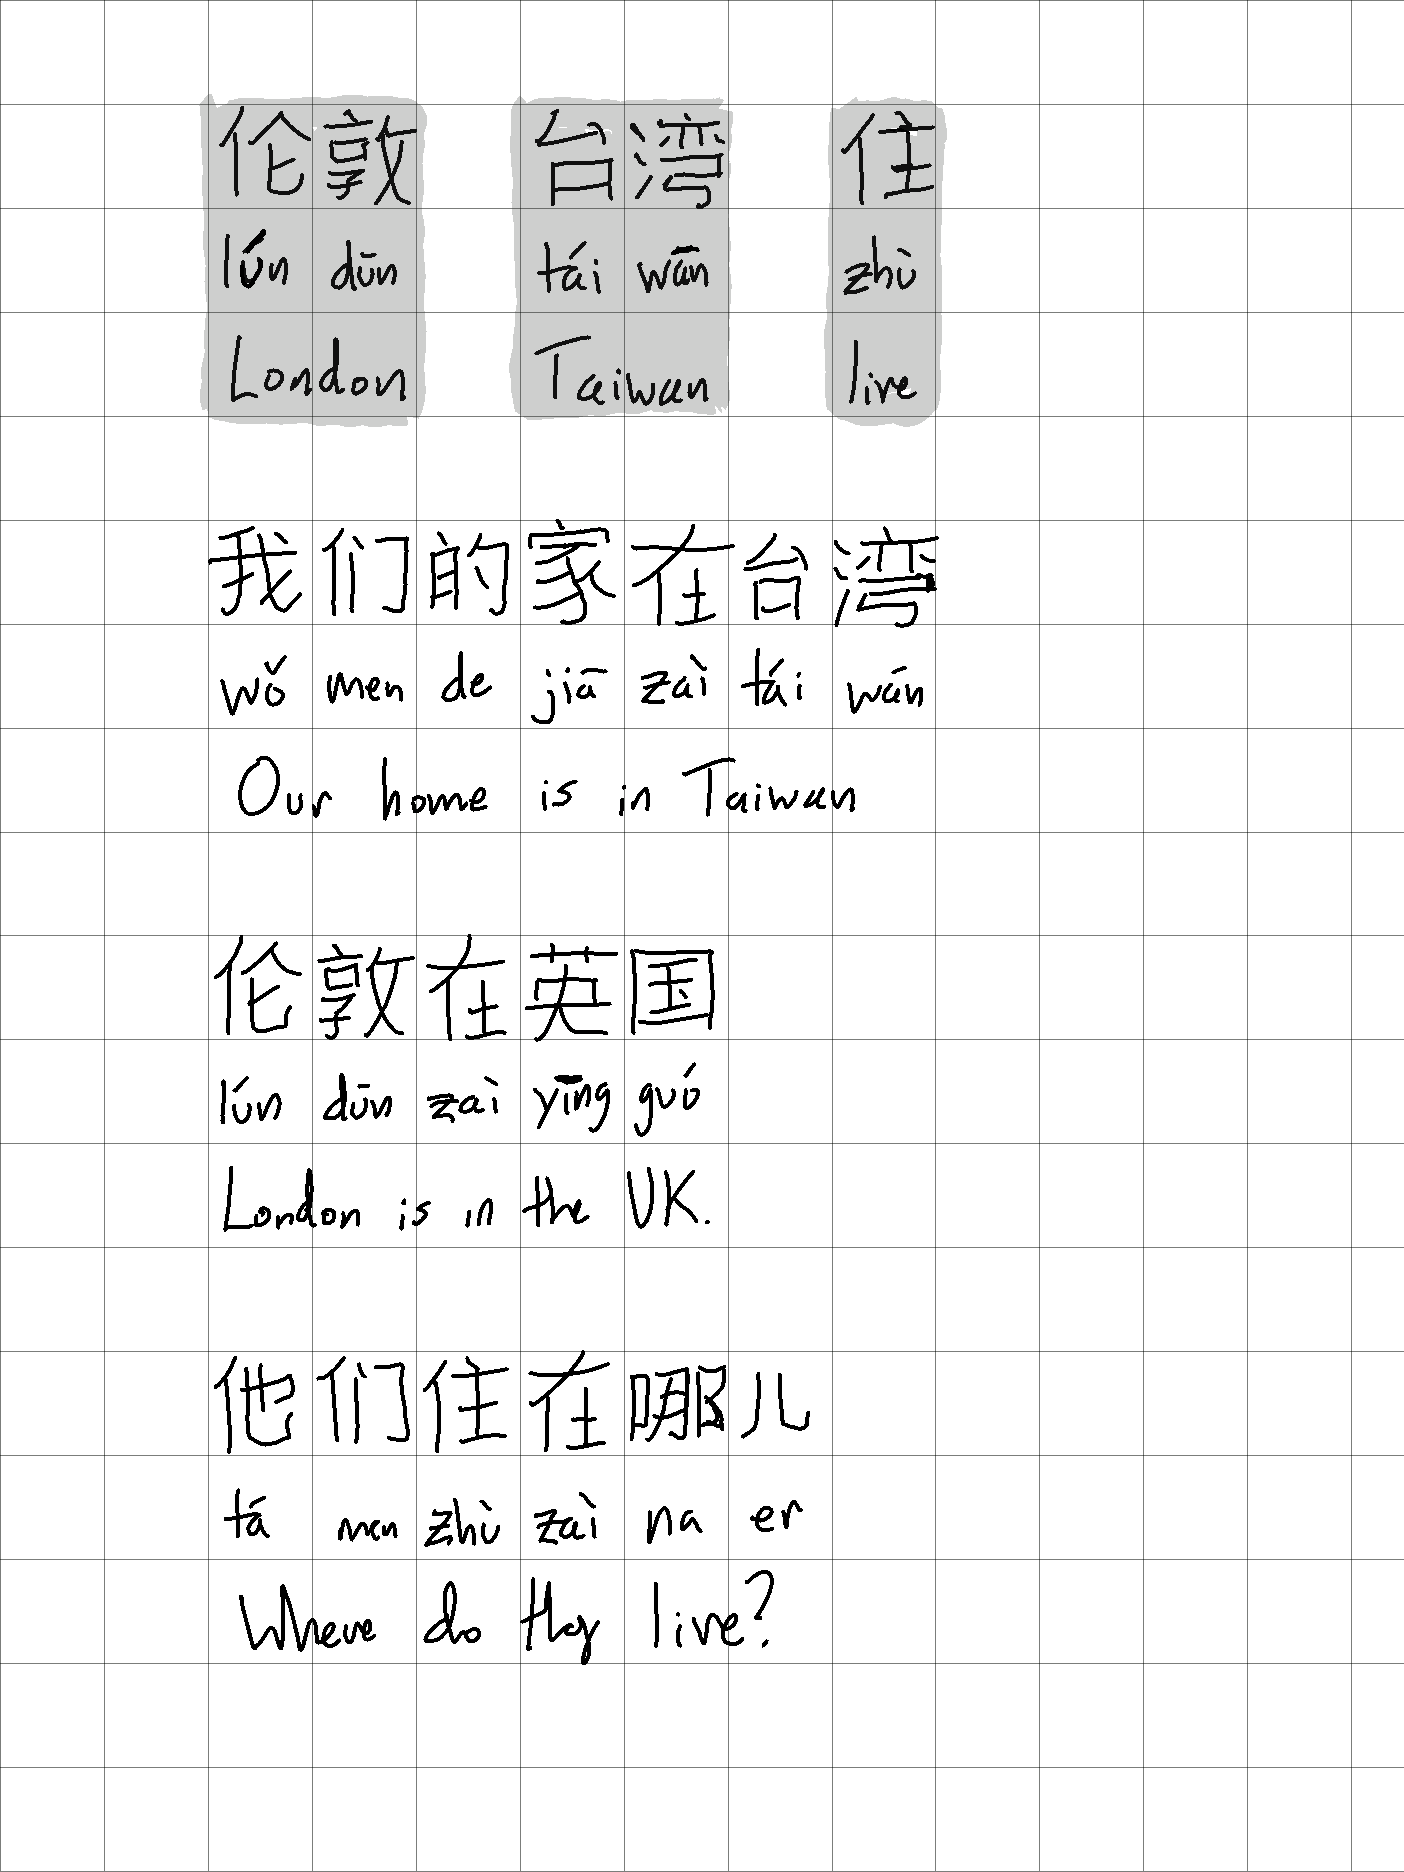 伦敦 台湾 住
lún dūn tái wān zhù
London Taiwan live
我们的家在台湾
wǒ men de jiā zài tái wān
Our home is in Taiwan
伦敦在英国
lún dūn zaì yīng guó
London is in the UK.
他们住在哪儿
tá men zhù zaì na er
Where do they live?